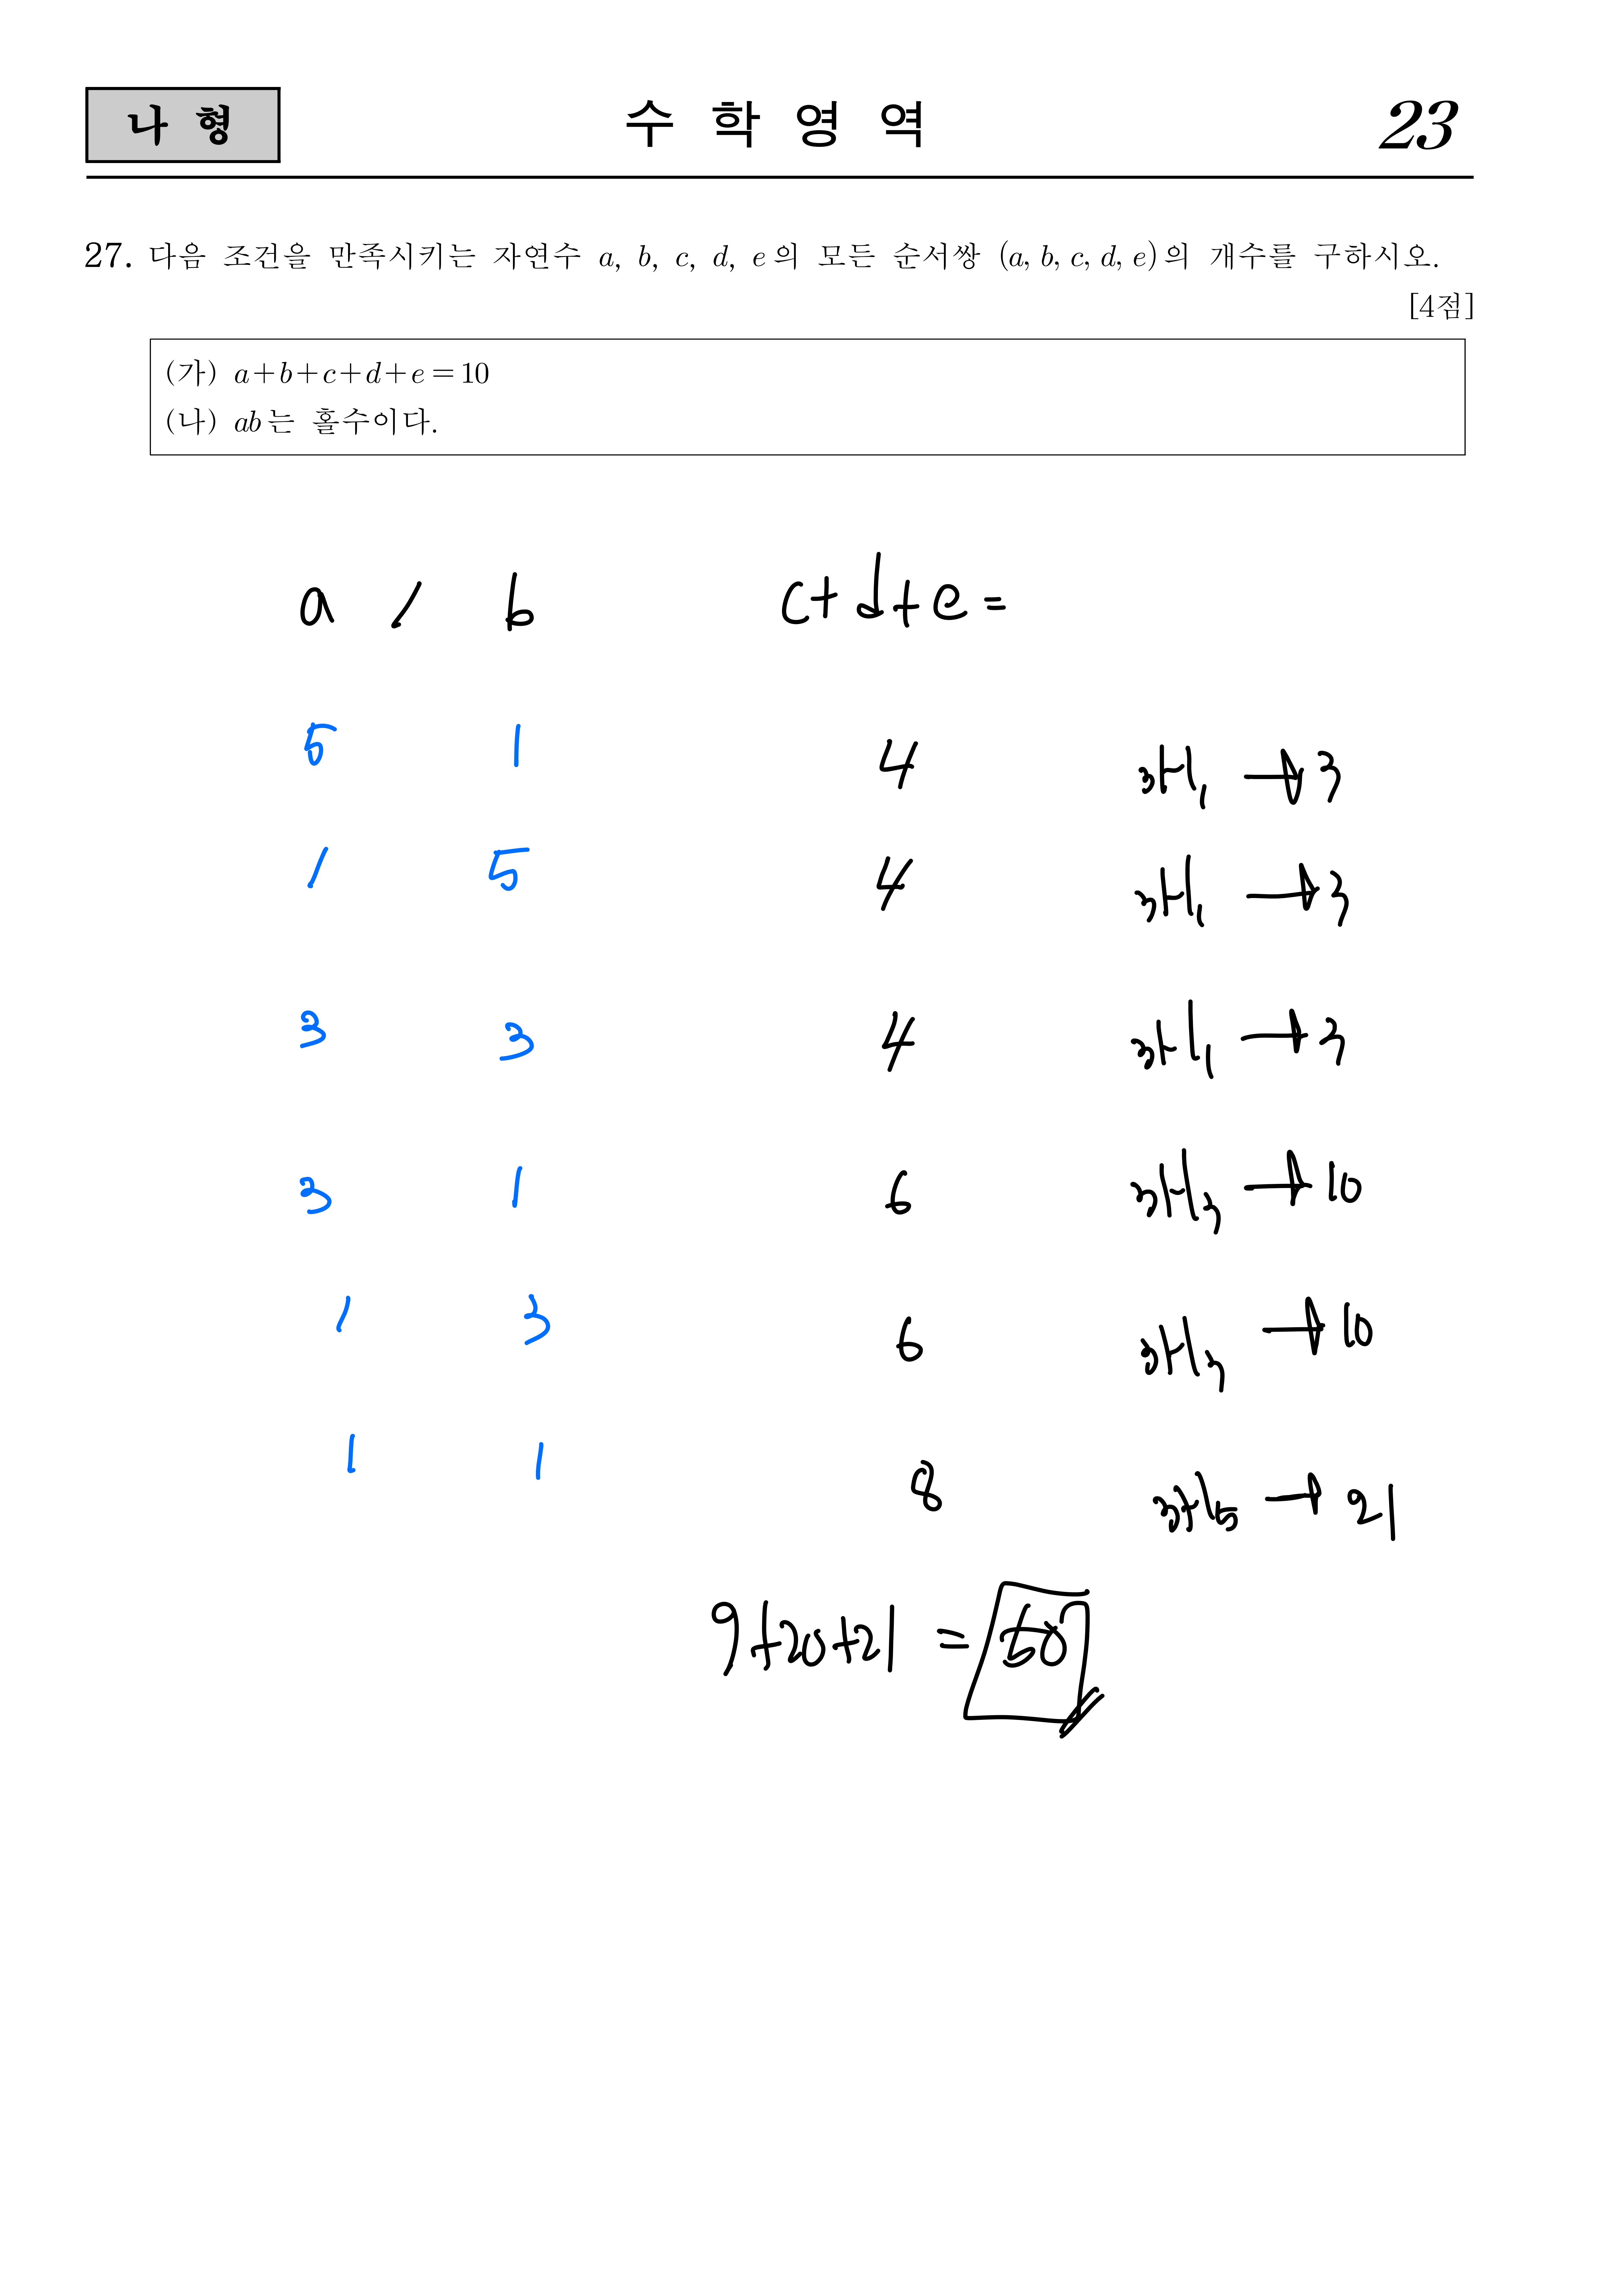 나 형 수 학 영 역 23
27. 다음 조건을 만족시키는 자연수 a, b, c, d, e의 모든 순서쌍 (a, b, c, d, e)의 개수를 구하시오.
[4점]
(가) a+b+c+d+e=10
(나) ab는 홀수이다.
a , b c+d+e=
5 1 4 ₃H₁ → 3
1 5 4 ₃H₁ → 3
3 3 4 ₃H₁ → 3
3 1 6 ₃H₃ → 10
1 3 6 ₃H₃ → 10
1 1 8 ₃H₅ → 21
9+20+21 = 50